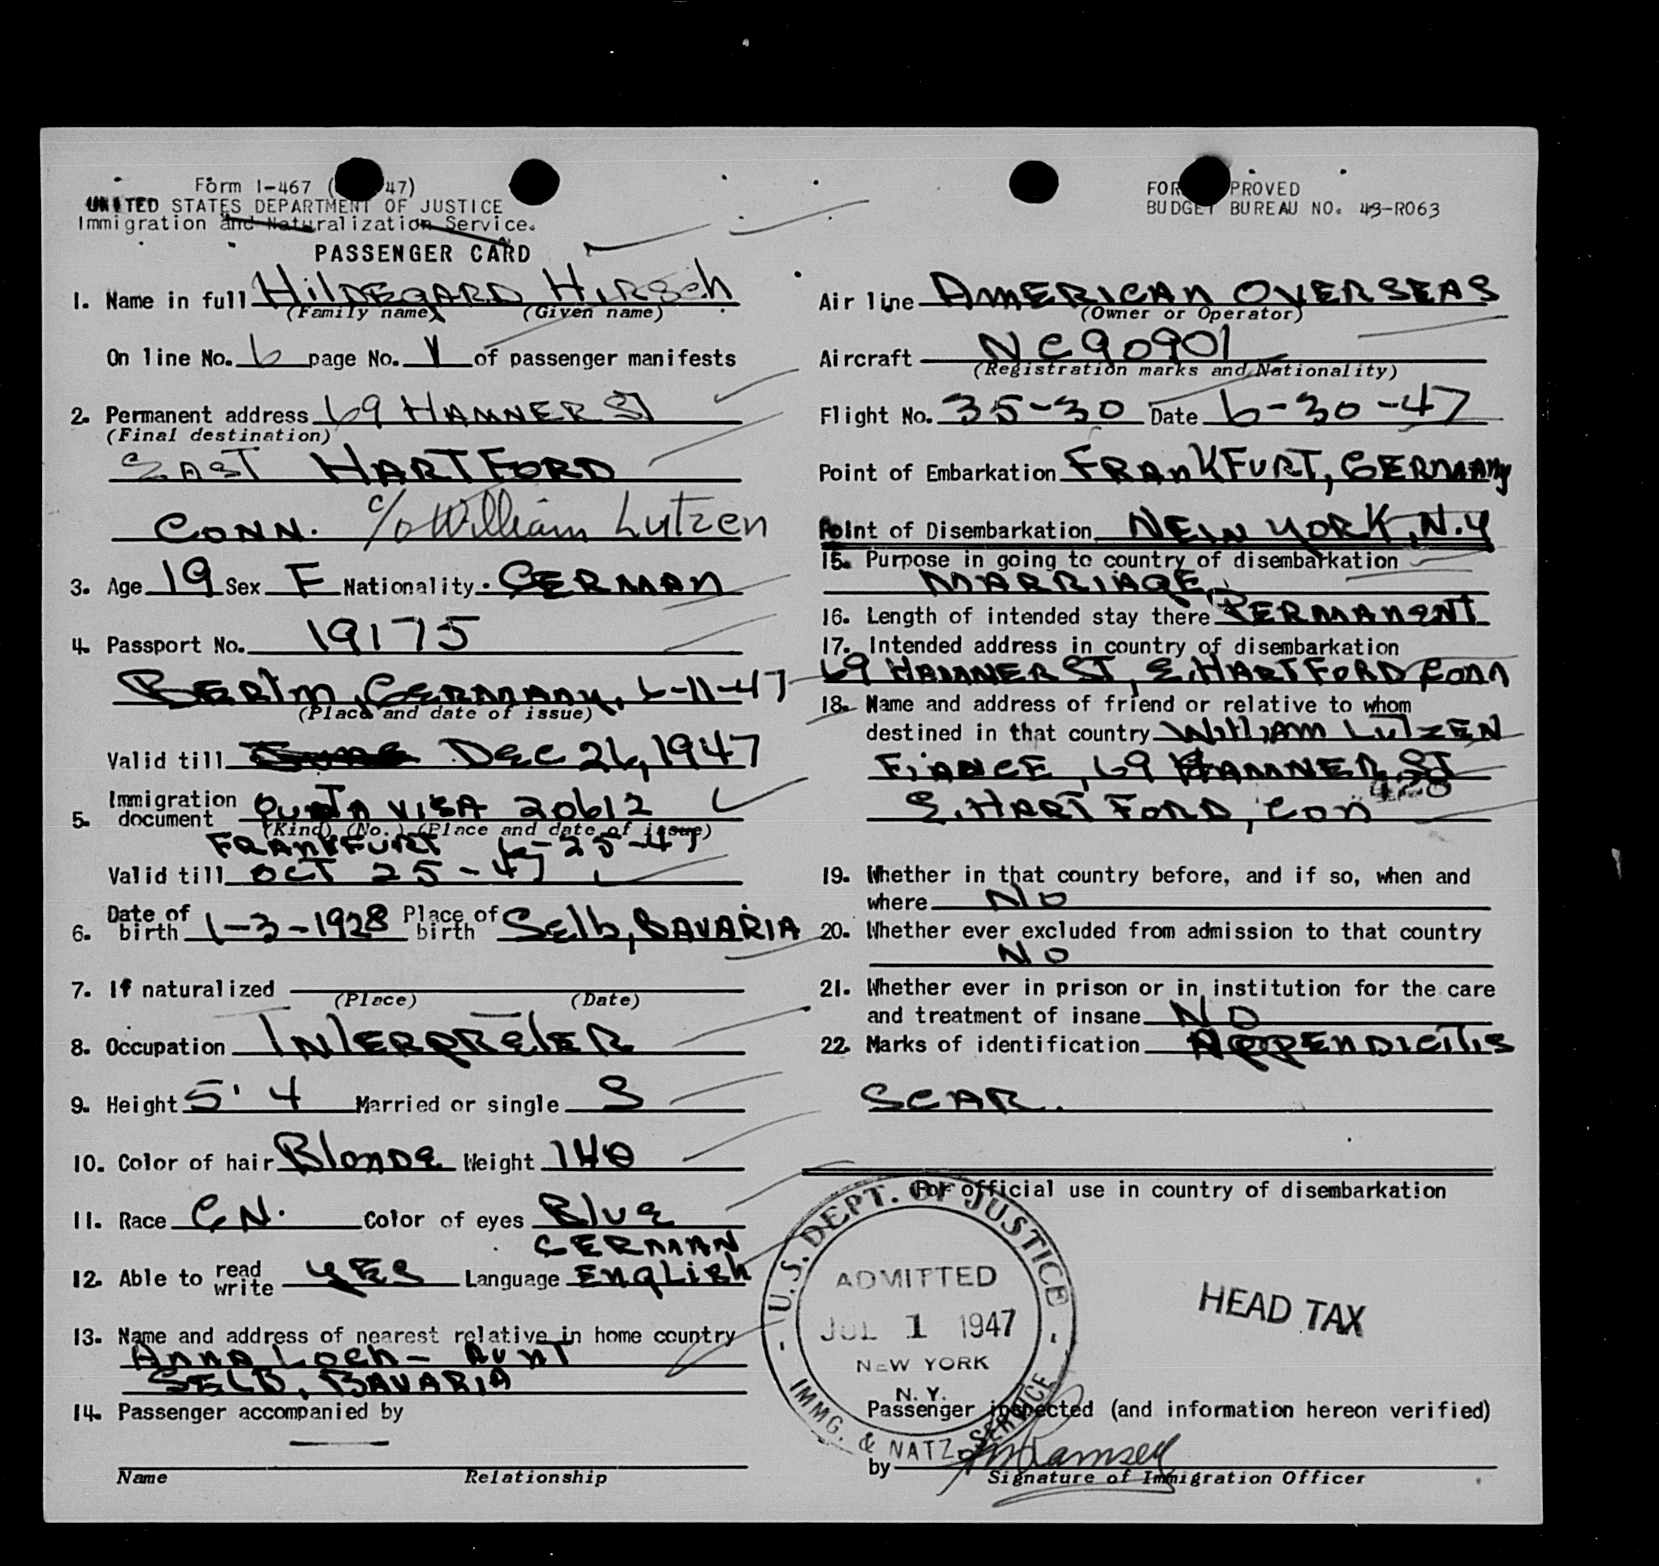 Form I-467 ( 47)
UNITED STATES DEPARTMENT OF JUSTICE
Immigration and Naturalization Service.
PASSENGER CARD
FOR PROVED
BUDGET BUREAU NO. 43-R063
1. Name in full HILDEGARD HIRSCH
(Family name) (Given name)
On line No. 6 page No. 1 of passenger manifests
2. Permanent address 69 HAMNER ST
(Final destination)
EAST HARTFORD
CONN. c/o William Lutzen
3. Age 19 Sex F Nationality. GERMAN
4. Passport No. 19175
BERLIN, GERMANY, 6-11-47
(Place and date of issue)
Valid till DEC 26, 1947
5. Immigration document QUOTA VISA 20612
(Kind) (No.) (Place and date of issue)
FRANKFURT 6-25-47
Valid till OCT 25-47
6. Date of birth 1-3-1928 Place of birth Selb, BAVARIA
7. If naturalized
(Place) (Date)
8. Occupation INTERPRETER
9. Height 5' 4 Married or single S
10. Color of hair BLONDE Weight 140
11. Race GN. Color of eyes BLUE
GERMAN
12. Able to read write YES Language ENGLISH
13. Name and address of nearest relative in home country
ANNA LOEH - AUNT
SELB, BAVARIA
14. Passenger accompanied by
Name Relationship
Air line AMERICAN OVERSEAS
(Owner or Operator)
Aircraft NC90901
(Registration marks and Nationality)
Flight No. 35-30 Date 6-30-47
Point of Embarkation FRANKFURT, GERMANY
Point of Disembarkation NEW YORK, N.Y
15. Purpose in going to country of disembarkation
MARRIAGE
16. Length of intended stay there PERMANENT
17. Intended address in country of disembarkation
69 HAMNER ST, E. HARTFORD CONN
18. Name and address of friend or relative to whom
destined in that country WILLIAM LUTZEN
FIANCE, 69 HAMNER ST
428
E. HARTFORD, CON
19. Whether in that country before, and if so, when and
where NO
20. Whether ever excluded from admission to that country
NO
21. Whether ever in prison or in institution for the care
and treatment of insane NO
22. Marks of identification APPENDICITIS
SCAR.
For official use in country of disembarkation
U.S. DEPT. OF JUSTICE
ADMITTED
JUL 1 1947
NEW YORK
N. Y.
IMMG. & NATZ. SERVICE
HEAD TAX
Passenger inspected (and information hereon verified)
by Ramsey
Signature of Immigration Officer